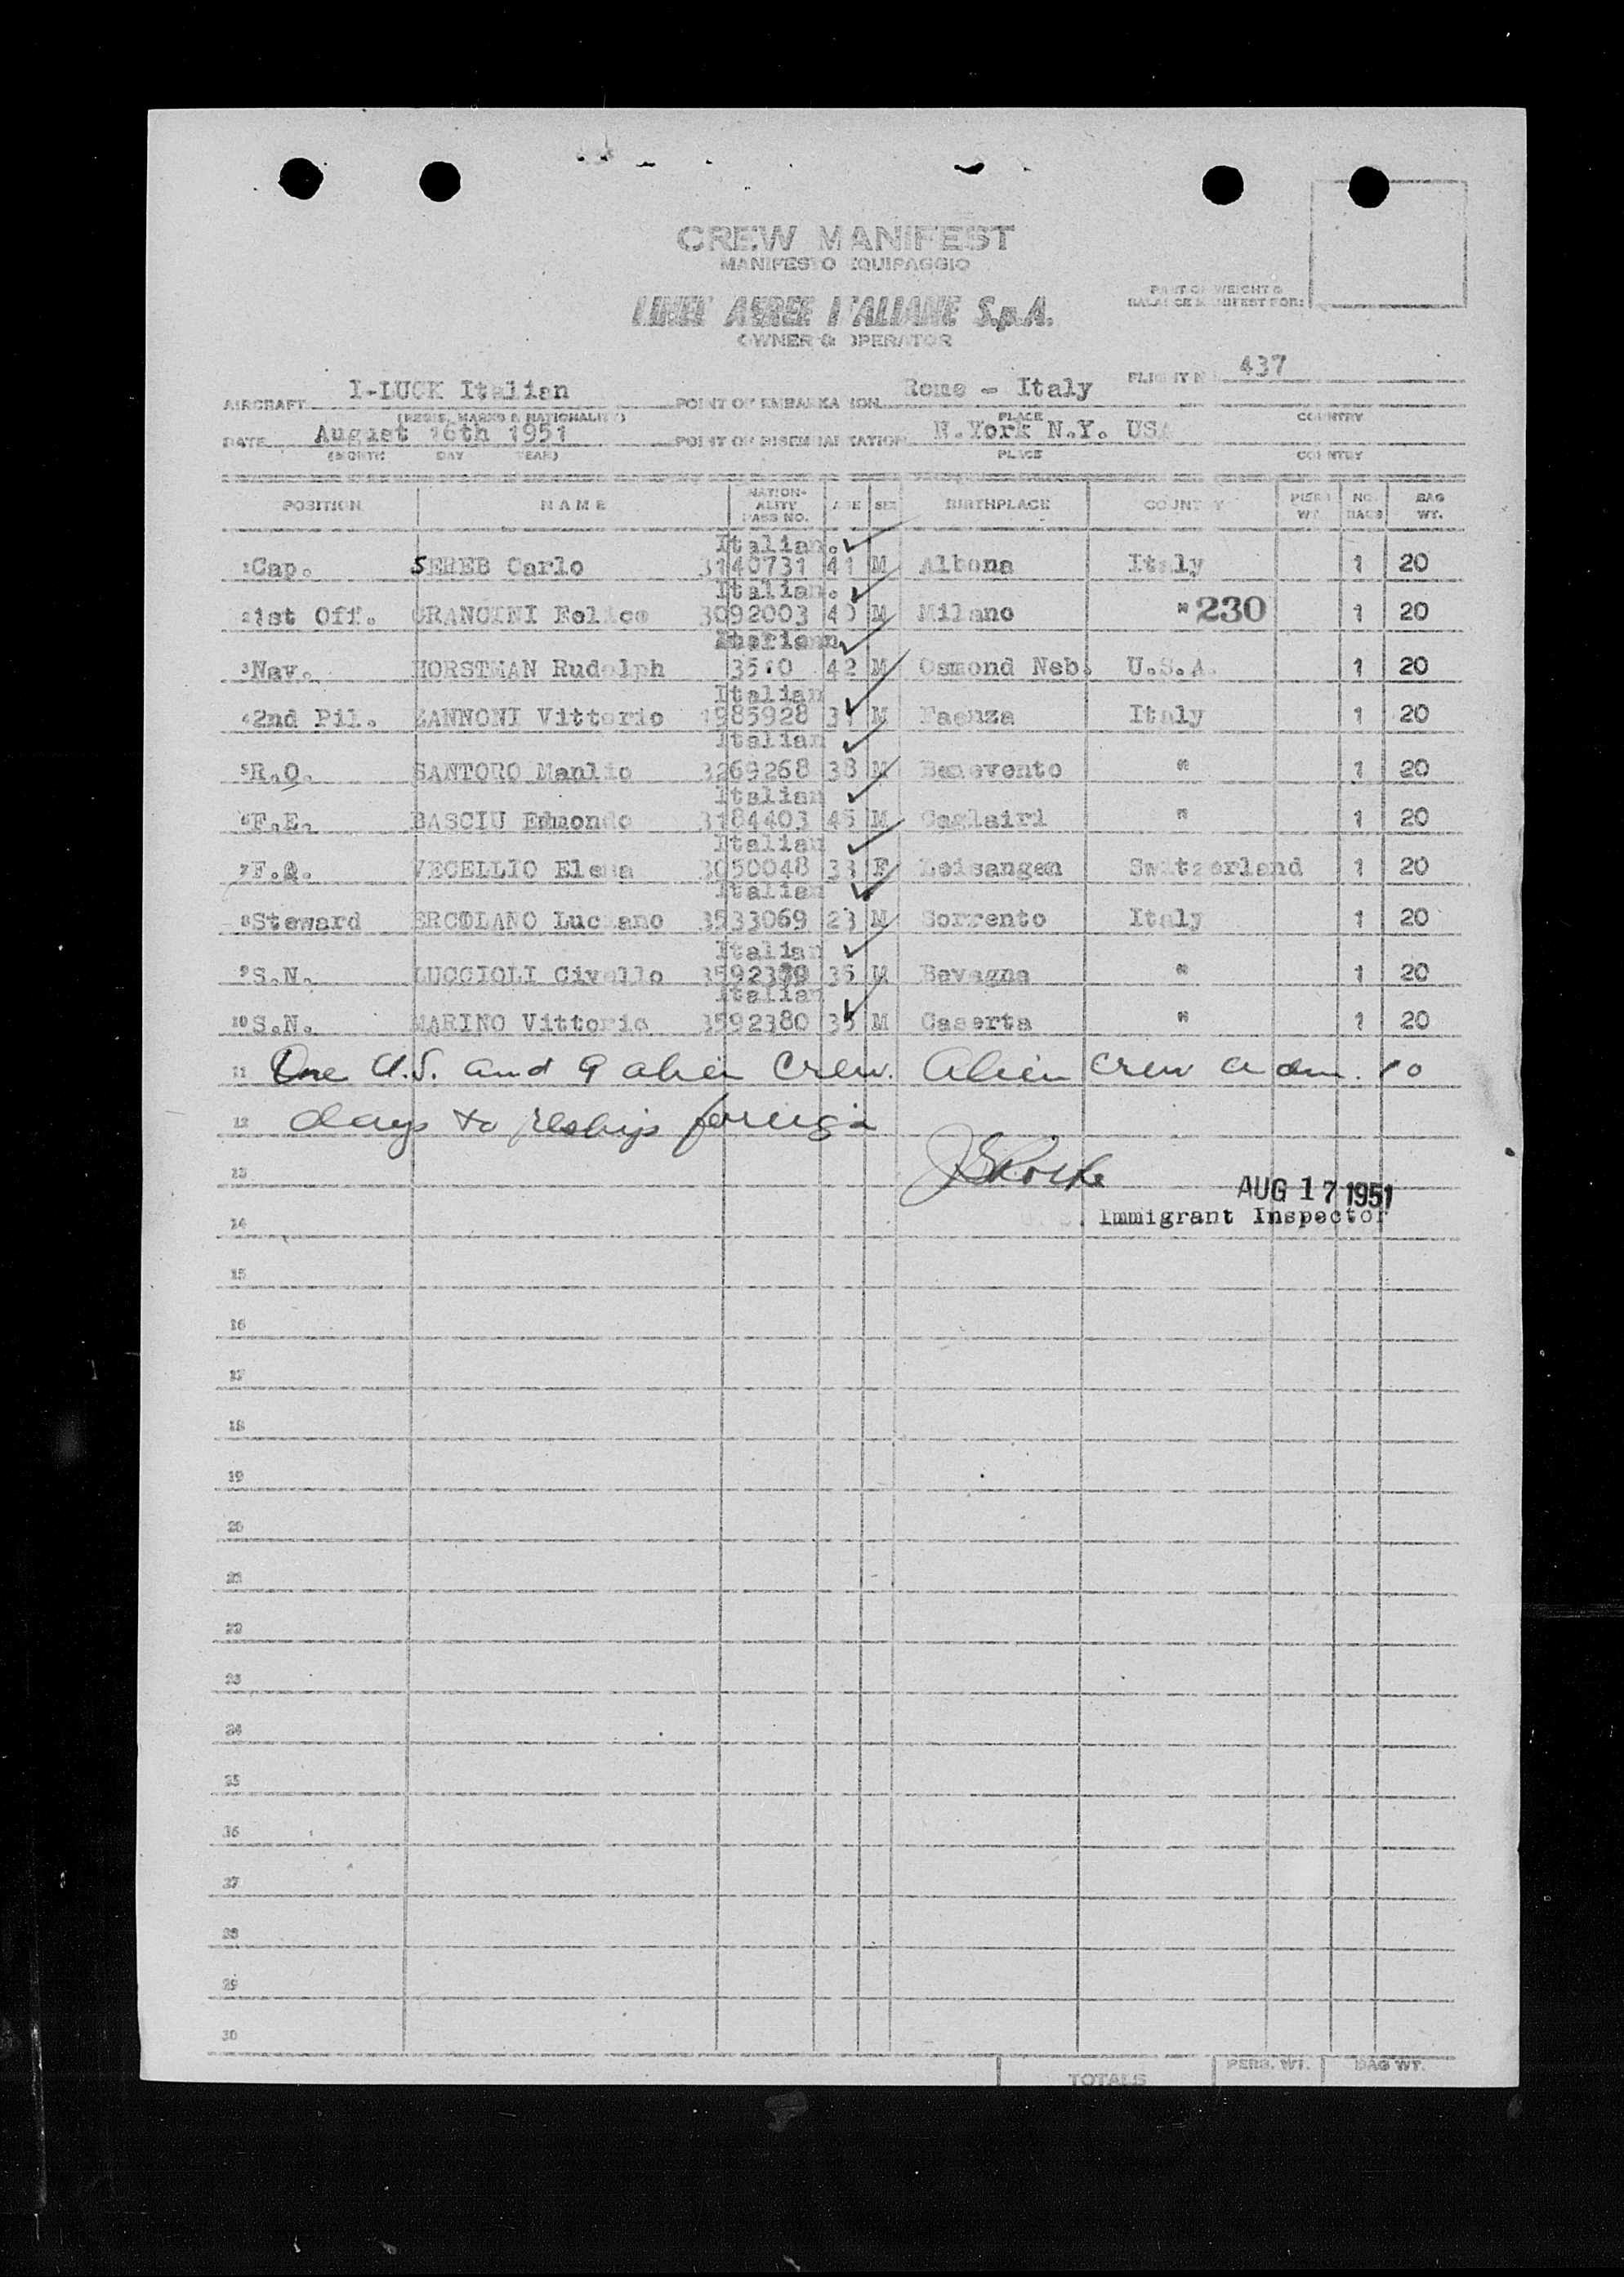 CREW MANIFEST
MANIFESTO EQUIPAGGIO
PART OF WEIGHT &
BALANCE MANIFEST FOR:
LINEE AEREE ITALIANE S.p.A.
OWNER & OPERATOR
FLIGHT No. 437
AIRCRAFT I-LUCK Italian POINT OF EMBARKATION Rome - Italy
(REGIS. MARKS & NATIONALITY) PLACE COUNTRY
DATE August 16th 1951 POINT OF DISEMBARKATION N.York N.Y. USA
(MONTH DAY YEAR) PLACE COUNTRY
POSITION NAME NATION-ALITY PASS NO. AGE SEX BIRTHPLACE COUNTRY PERS WT. NO. BAGS BAG WT.
Italian.
1 Cap. SEREB Carlo 3140731 41 M Albona Italy 1 20
Italian.
2 1st Off. GRANCINI Felice 3092003 40 M Milano " 230 1 20
American
3 Nav. HORSTMAN Rudolph 42 M Osmond Neb. U.S.A. 1 20
Italian
4 2nd Pil. ZANNONI Vittorio 1985928 M Faenza Italy 1 20
Italian
5 R.O. SANTORO Manlio 3269268 38 M Benevento " 1 20
Italian
6 F.E. BASCIU Edmondo 3184403 46 M Caglairi " 1 20
Italian
7 F.A. VECELLIO Elena 3050048 F Leisangen Switzerland 1 20
Italian
8 Steward ERCOLANO Luciano 3533069 23 M Sorrento Italy 1 20
Italian
9 S.N. LUCCIOLI Civello 36 M Bevagna " 1 20
Italian
10 S.N. MARINO Vittorio 3592380 M Caserta " 1 20
11 One U.S. and 9 alien crew. Alien crew adm. 10
12 days to reship foreign
13
AUG 17 1951
14 Immigrant Inspector
15
16
17
18
19
20
21
22
23
24
25
26
27
28
29
30
TOTALS PERS. WT. BAG WT.